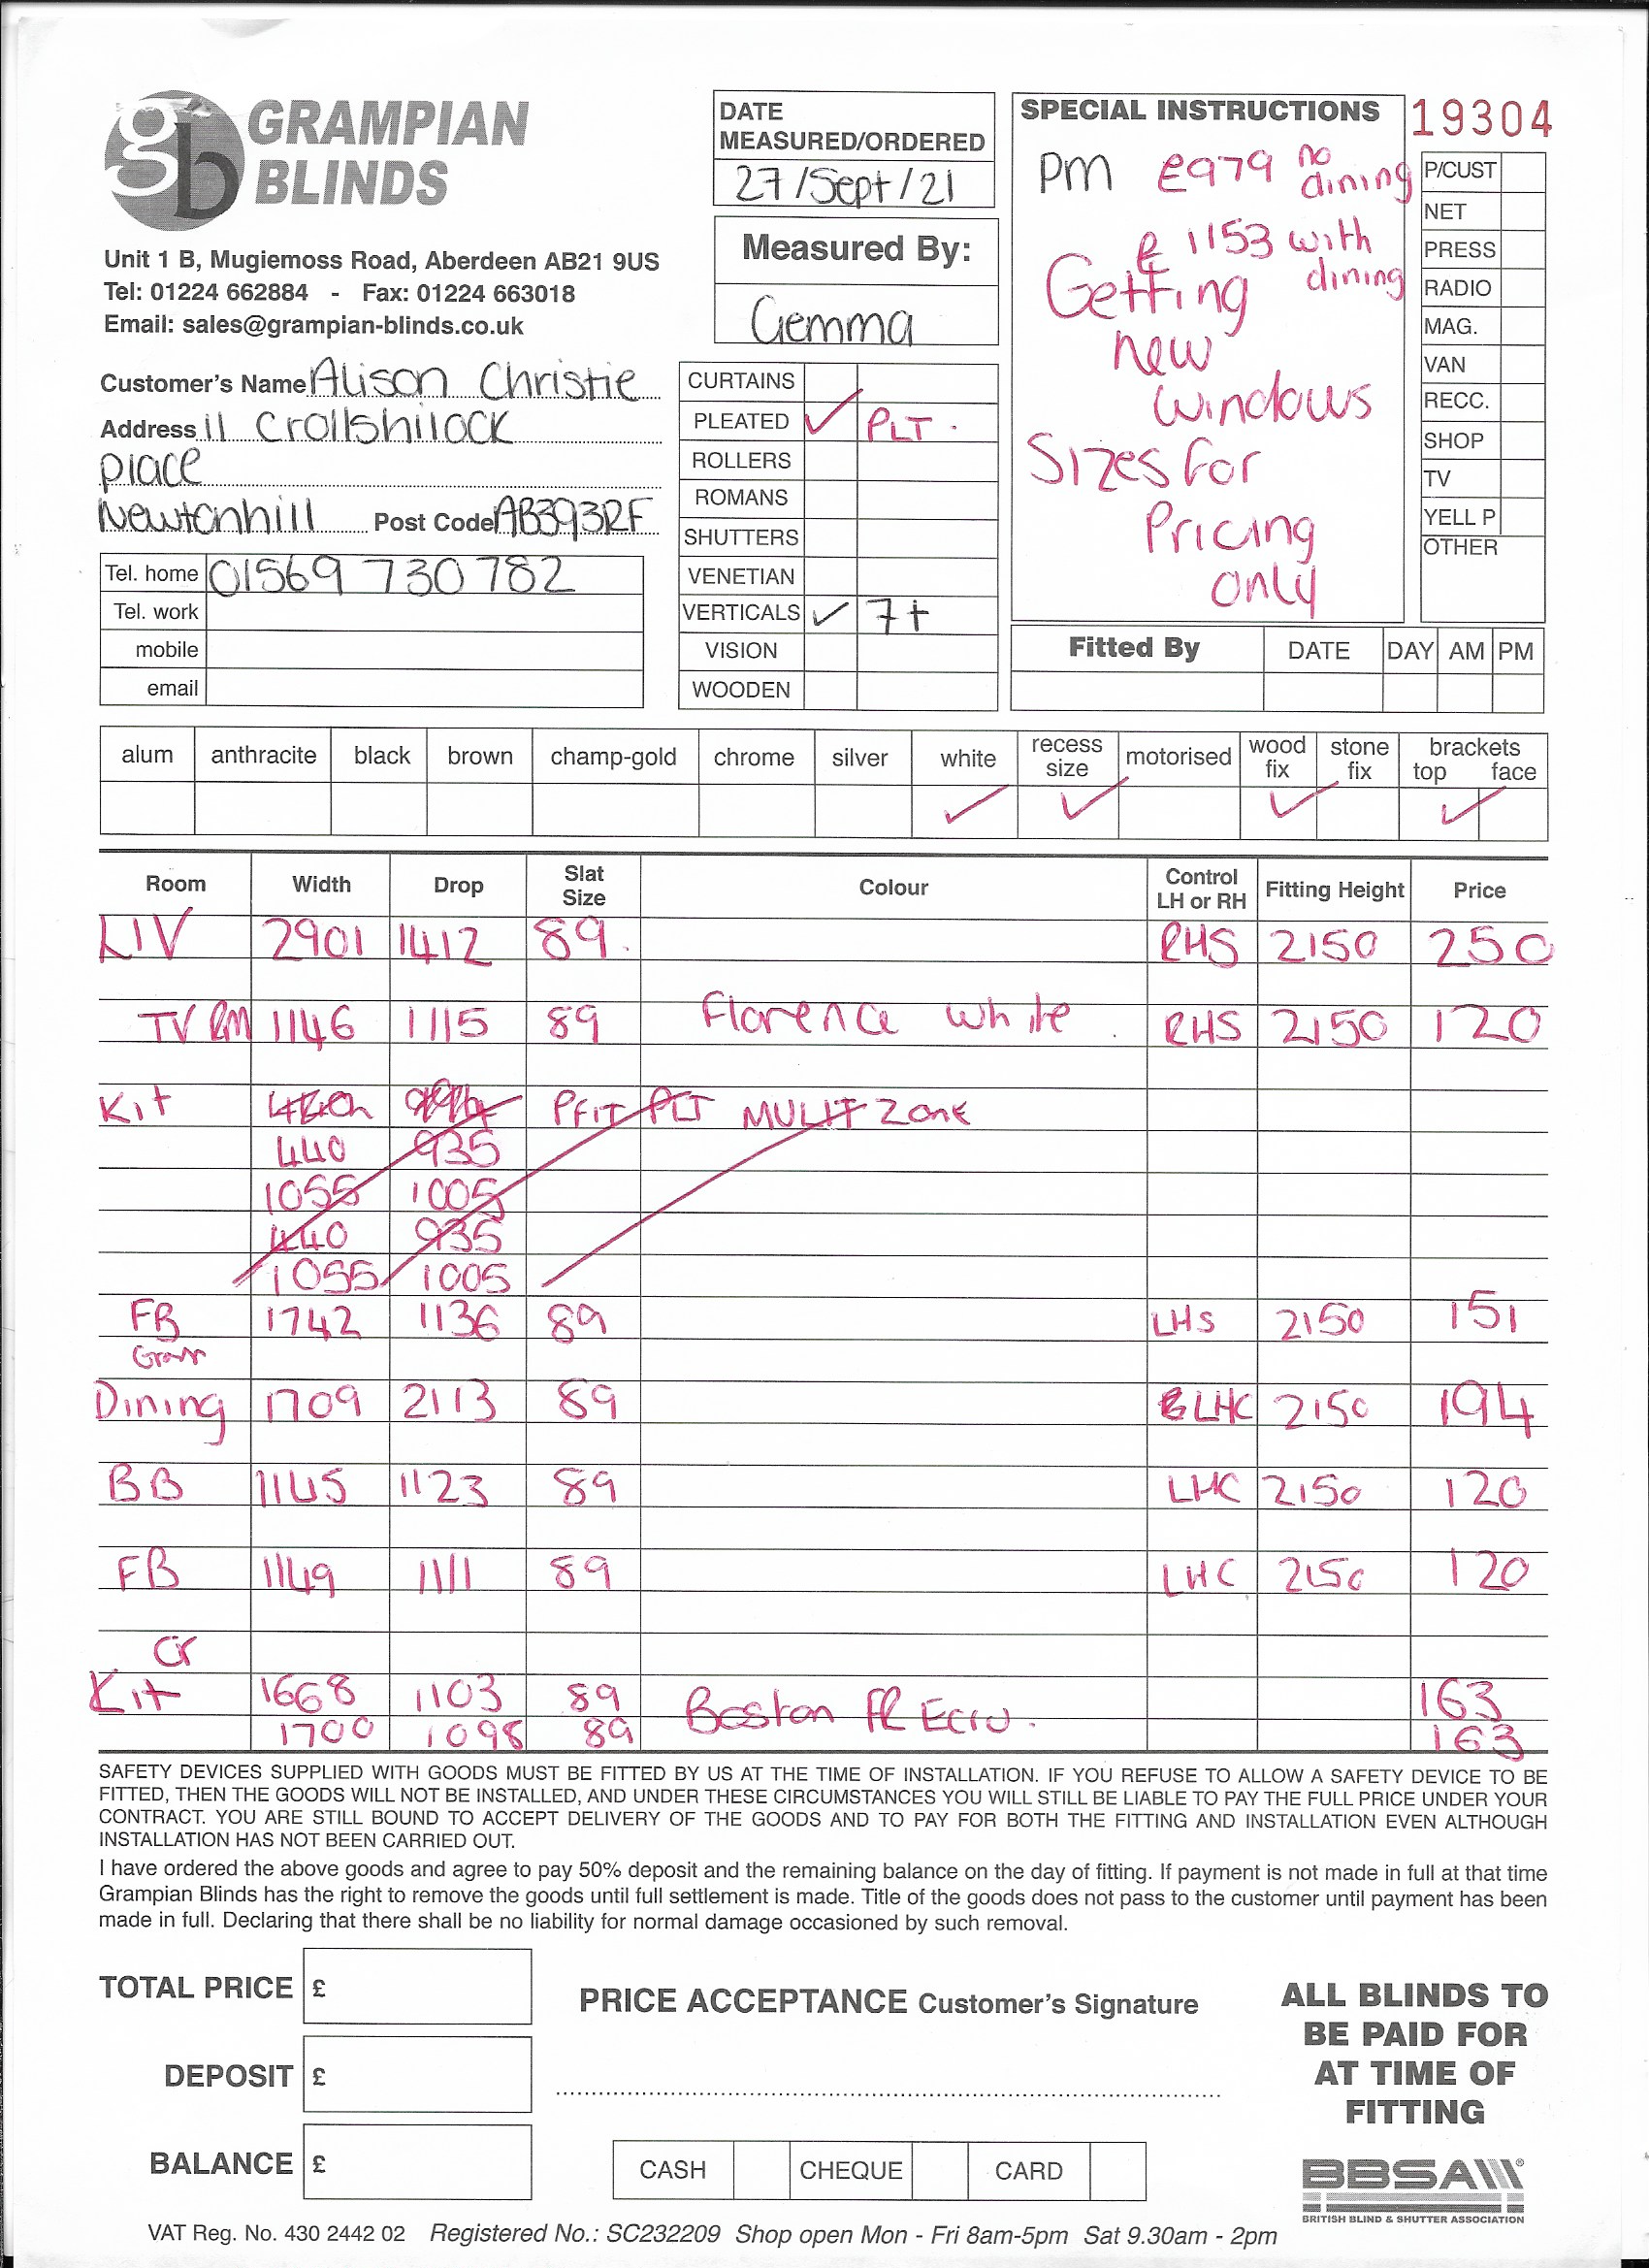 gb GRAMPIAN
BLINDS
Unit 1 B, Mugiemoss Road, Aberdeen AB21 9US
Tel: 01224 662884 - Fax: 01224 663018
Email: sales@grampian-blinds.co.uk
DATE
MEASURED/ORDERED
27/Sept/21
Measured By:
Gemma
SPECIAL INSTRUCTIONS
PM £979 no dining
£1153 with dining
Getting
new
windows
Sizes for
Pricing
only
19304
P/CUST
NET
PRESS
RADIO
MAG.
VAN
RECC.
SHOP
TV
YELL P
OTHER
Customer's Name Alison Christie
Address 11 Crollshillock
place
Newtonhill Post Code AB393RF
Tel. home 01569 730 782
Tel. work
mobile
email
CURTAINS
PLEATED ✓ PLT.
ROLLERS
ROMANS
SHUTTERS
VENETIAN
VERTICALS ✓ 7+
VISION
WOODEN
Fitted By DATE DAY AM PM
alum anthracite black brown champ-gold chrome silver white recess size motorised wood fix stone fix brackets top face
✓ ✓ ✓ ✓
Room Width Drop Slat Size Colour Control LH or RH Fitting Height Price
LIV 2901 1412 89. RHS 2150 250
TV RM 1146 1115 89 Florence white RHS 2150 120
Kit PFIT PLT MULTI Zone
440 935
1055 1005
440 935
1055 1005
FB 1742 1136 89 LHS 2150 151
Dining 1709 2113 89 LHC 2150 194
BB 1145 1123 89 LHC 2150 120
FB 1149 1111 89 LHC 2150 120
Or
Kit 1668 1103 89 Boston FR Ecru. 163
1700 1098 89 163
SAFETY DEVICES SUPPLIED WITH GOODS MUST BE FITTED BY US AT THE TIME OF INSTALLATION. IF YOU REFUSE TO ALLOW A SAFETY DEVICE TO BE
FITTED, THEN THE GOODS WILL NOT BE INSTALLED, AND UNDER THESE CIRCUMSTANCES YOU WILL STILL BE LIABLE TO PAY THE FULL PRICE UNDER YOUR
CONTRACT. YOU ARE STILL BOUND TO ACCEPT DELIVERY OF THE GOODS AND TO PAY FOR BOTH THE FITTING AND INSTALLATION EVEN ALTHOUGH
INSTALLATION HAS NOT BEEN CARRIED OUT.
I have ordered the above goods and agree to pay 50% deposit and the remaining balance on the day of fitting. If payment is not made in full at that time
Grampian Blinds has the right to remove the goods until full settlement is made. Title of the goods does not pass to the customer until payment has been
made in full. Declaring that there shall be no liability for normal damage occasioned by such removal.
TOTAL PRICE £
DEPOSIT £
BALANCE £
PRICE ACCEPTANCE Customer's Signature
CASH CHEQUE CARD
ALL BLINDS TO
BE PAID FOR
AT TIME OF
FITTING
BBSA
BRITISH BLIND & SHUTTER ASSOCIATION
VAT Reg. No. 430 2442 02 Registered No.: SC232209 Shop open Mon - Fri 8am-5pm Sat 9.30am - 2pm